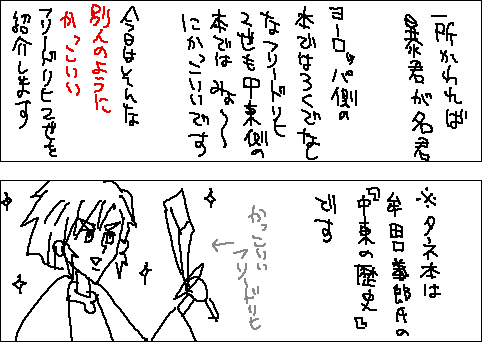 一所かわれば
暴君が名君
ヨーロッパ側の
本ではろくでなし
なフリードリヒ
2世も中東側の
本では みょ〜〜
にかっこいいです
今日はそんな
別人のように
かっこいい
フリードリヒ2世を
紹介します
※タネ本は
牟田口義郎氏の
『中東の歴史』
です
かっこいい
フリードリヒ
←